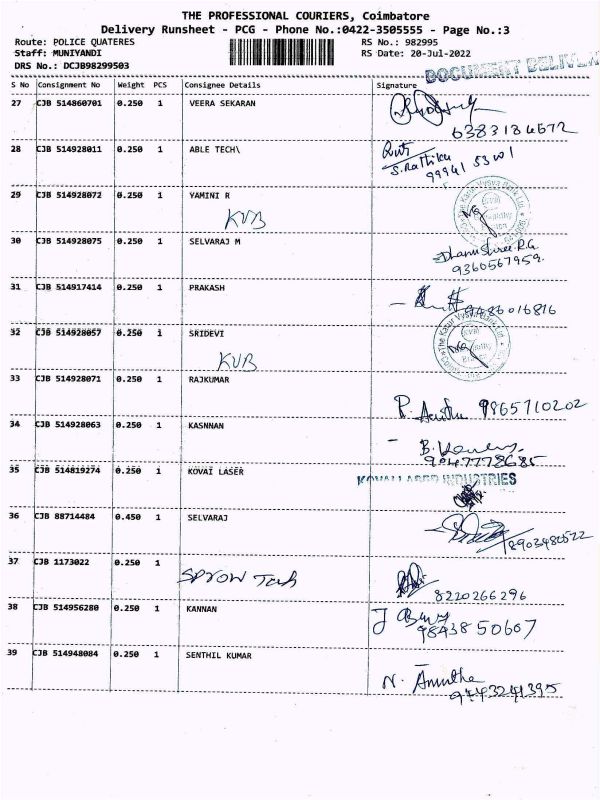 THE PROFESSIONAL COURIERS, Coimbatore
Delivery Runsheet - PCG - Phone No.:0422-3505555 - Page No.:3
Route: POLICE QUATERES RS No.: 982995
Staff: MUNIYANDI RS Date: 20-Jul-2022
DRS No.: DCJB98299503
DOCUMENT DELIVE
S No Consignment No Weight PCS Consignee Details Signature
27 CJB 514860701 0.250 1 VEERA SEKARAN
6383184672
28 CJB 514928011 0.250 1 ABLE TECH\
S. Rathika
99941 53101
29 CJB 514928072 0.250 1 YAMINI R
KVB
30 CJB 514928075 0.250 1 SELVARAJ M
Dhanushree.R.G.
9360567959.
31 CJB 514917414 0.250 1 PRAKASH
9486016816
32 CJB 514928057 0.250 1 SRIDEVI
KVB
33 CJB 514928071 0.250 1 RAJKUMAR
9865710202
34 CJB 514928063 0.250 1 KASNNAN
9047778685
35 CJB 514819274 0.250 1 KOVAI LASER
KOVAI LASER INDUSTRIES
36 CJB 88714484 0.450 1 SELVARAJ
8903480522
37 CJB 1173022 0.250 1
SPROW Tech
8220266296
38 CJB 514956280 0.250 1 KANNAN
9843850607
39 CJB 514948084 0.250 1 SENTHIL KUMAR
N. Amutha
9443241395